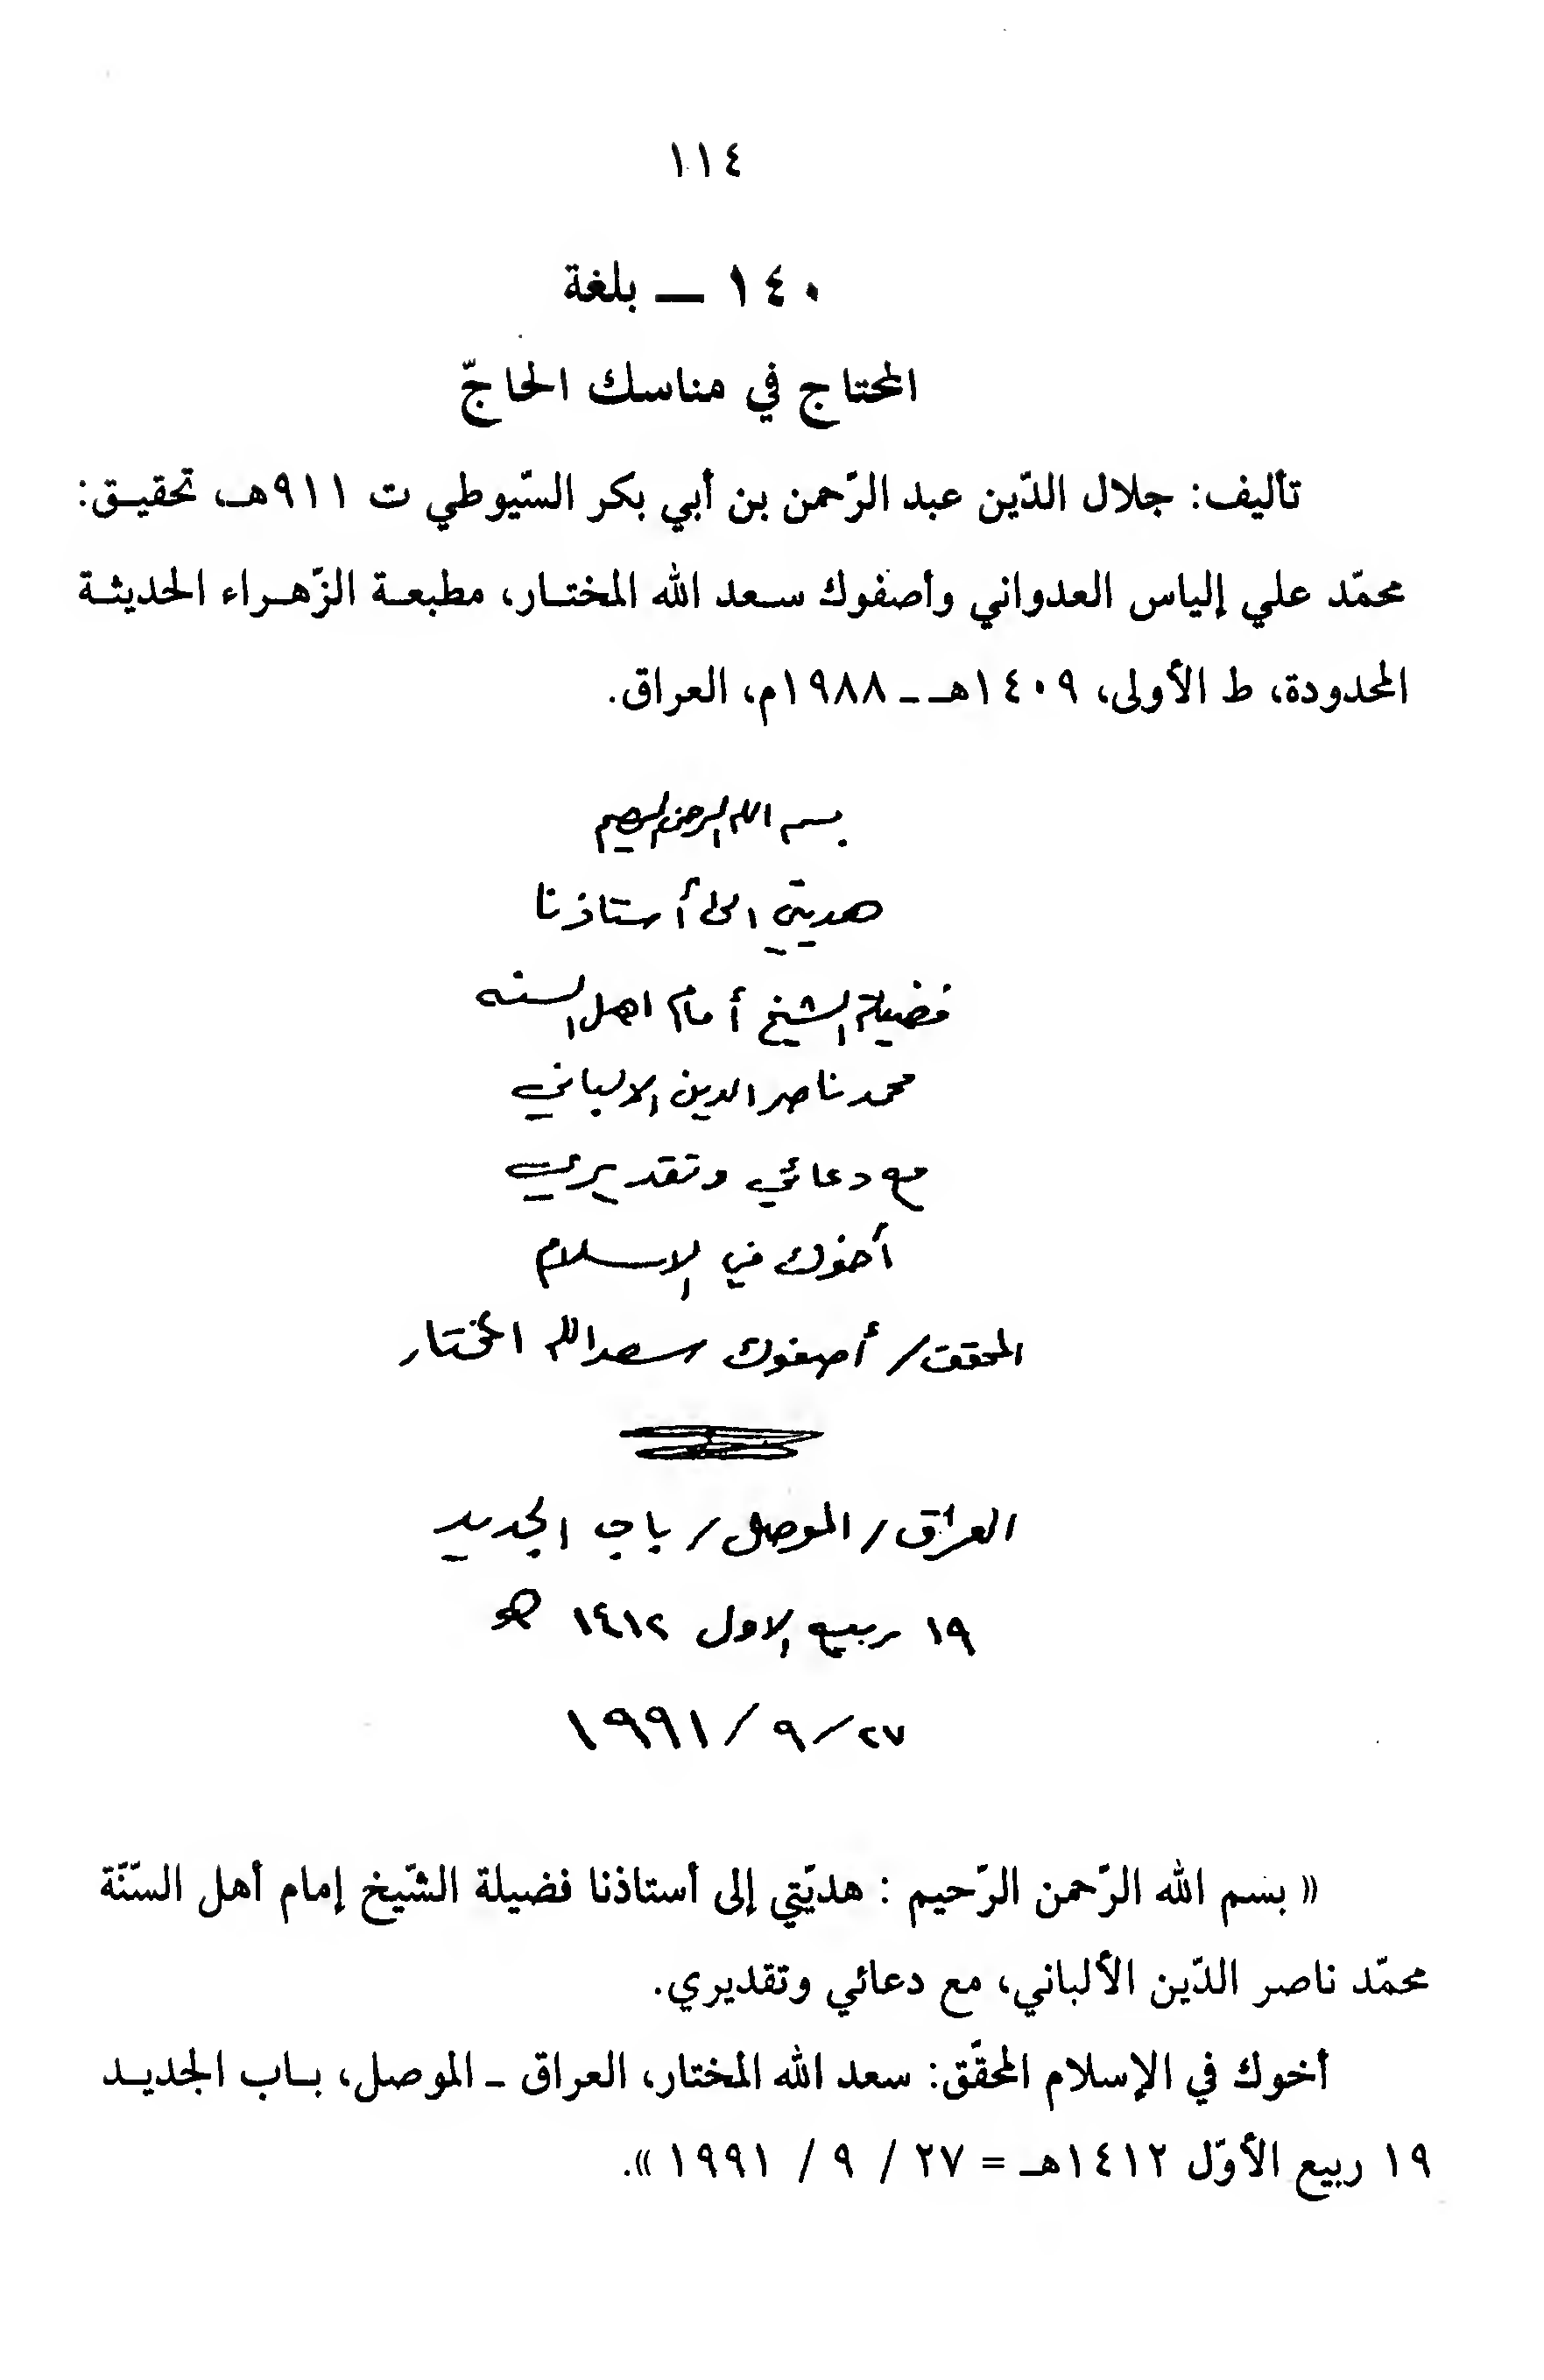 ١١٤
١٤٠ — بلغة
المحتاج في مناسك الحاجّ
تأليف: جلال الدّين عبد الرّحمن بن أبي بكر السّيوطي ت ٩١١هـ، تحقيـق:
محمّد علي إلياس العدواني وأصفوك سـعد الله المختـار، مطبعـة الزّهـراء الحديثـة
المحدودة، ط الأولى، ١٤٠٩هـ ـ ١٩٨٨م، العراق.
بسم الله الرحمن الرحيم
هديتي الى أستاذنا
فضيلة الشيخ أمام اهل السنه
محمد ناصر الدين الالباني
مع دعائي وتقديري
أخوك في الاسلام
المحقق / أصفوك سعد الله المختار
العراق / الموصل / باب الجديد
١٩ ربيع الاول ١٤١٢ هـ
٢٧ / ٩ / ١٩٩١
« بسم الله الرّحمن الرّحيم : هديّتي إلى أستاذنا فضيلة الشّيخ إمام أهل السّنّة
محمّد ناصر الدّين الألباني، مع دعائي وتقديري.
أخوك في الإسلام المحقّق: سعد الله المختار، العراق ـ الموصل، بـاب الجديـد
١٩ ربيع الأوّل ١٤١٢هـ = ٢٧ / ٩ / ١٩٩١ ».